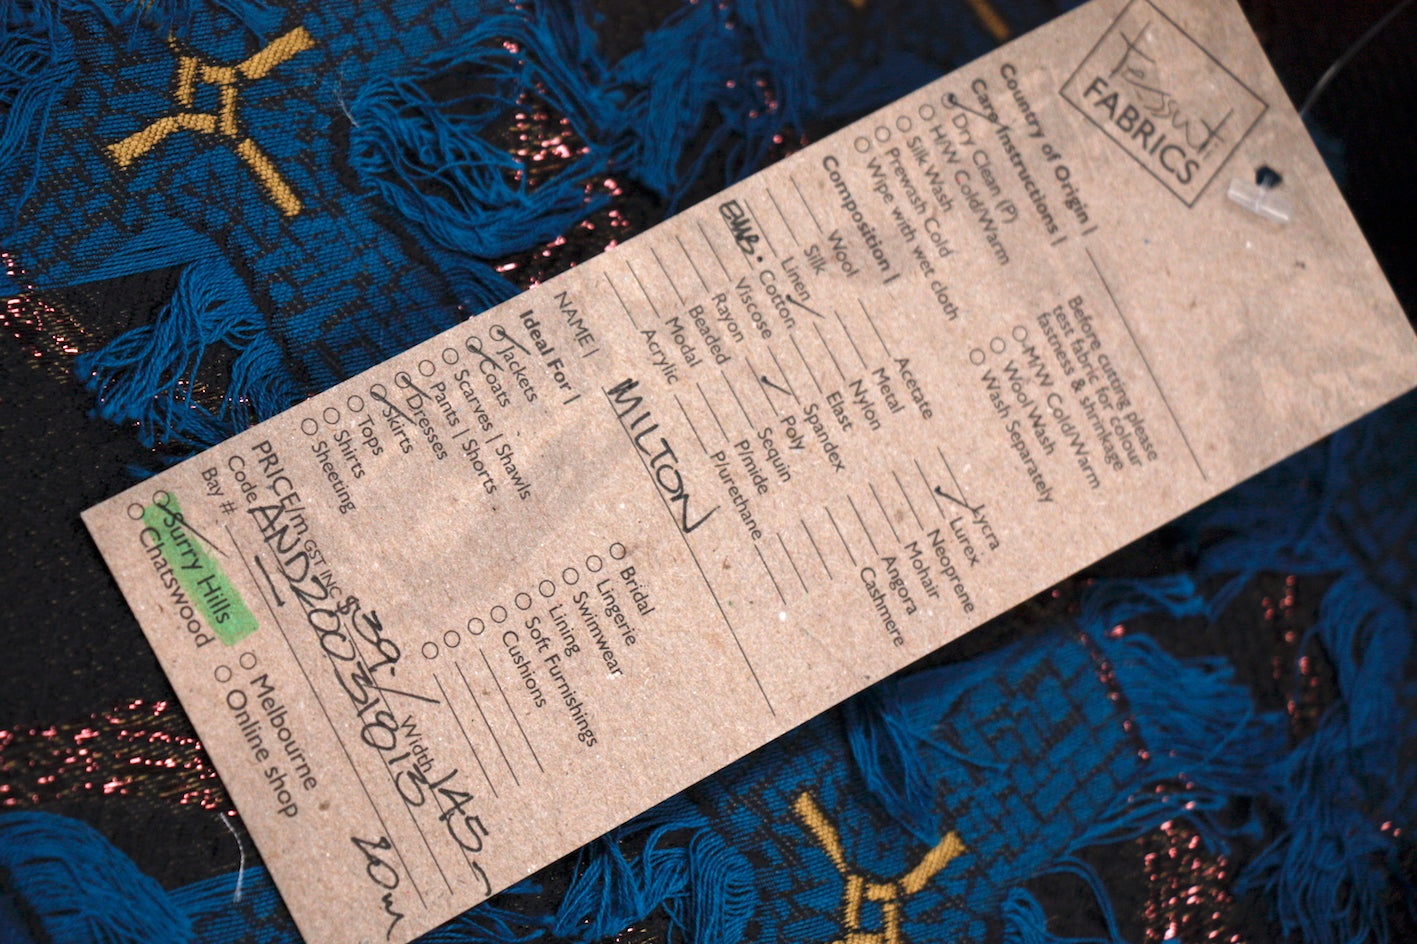 Tessuti
FABRICS
Country of Origin |
Care Instructions |
Dry Clean (P)
H/W Cold/Warm
Silk Wash
Prewash Cold
Wipe with wet cloth
Before cutting please
test fabric for colour
fastness & shrinkage
M/W Cold/Warm
Wool Wash
Wash Separately
Composition |
Wool
Silk
Linen
Cotton
Viscose
Rayon
Beaded
Modal
Acrylic
Acetate
Metal
Nylon
Elast
Spandex
Poly
Sequin
P/mide
P/urethane
Lycra
Lurex
Neoprene
Mohair
Angora
Cashmere
NAME | MILTON
Ideal For |
Jackets
Coats
Scarves | Shawls
Pants | Shorts
Dresses
Skirts
Tops
Shirts
Sheeting
Bridal
Lingerie
Swimwear
Lining
Soft Furnishings
Cushions
PRICE/m GST INC $39.- Width 145
Code AND200318013
Bay # 20m
Surry Hills
Chatswood
Melbourne
Online shop